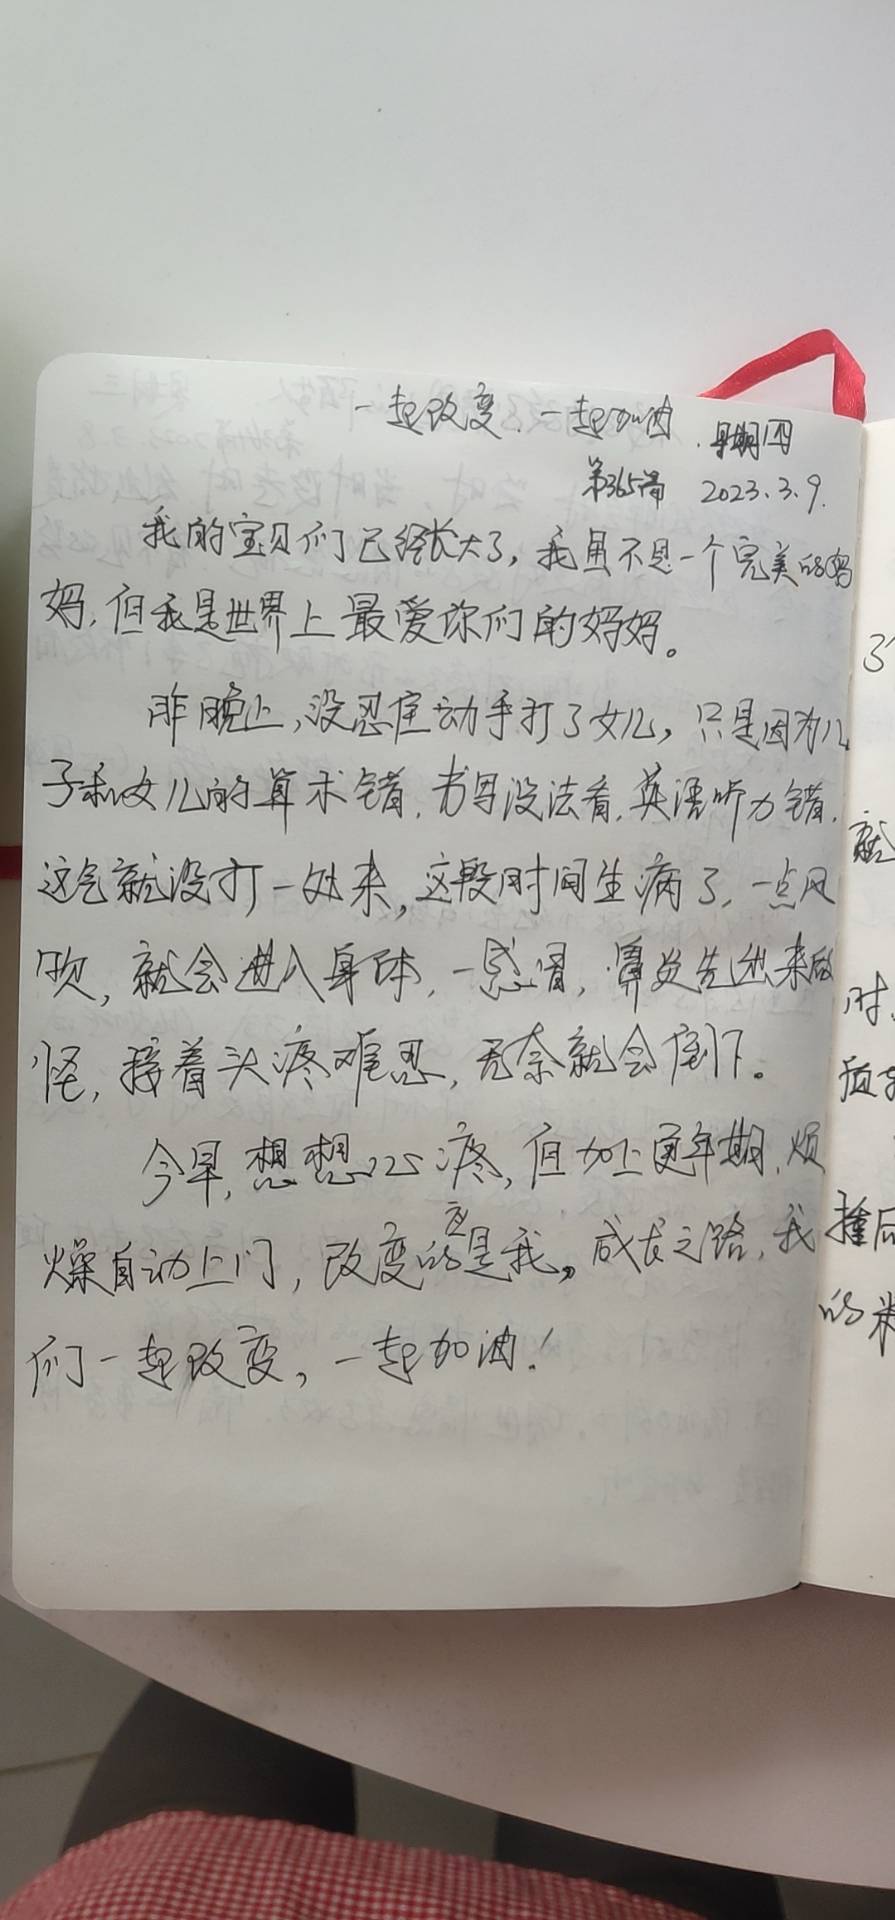 一起改变、一起加油 . 星期四
第365篇 2023.3.9.
我的宝贝们已经长大了，我虽不是一个完美的妈
妈，但我是世界上最爱你们的妈妈。
昨晚上，没忍住动手打了女儿，只是因为儿
子和女儿的算术错，书写没法看，英语听力错，
这气就没打一处来，这段时间生病了，一点风
吹，就会进入身体，一感冒，鼻炎先出来做
怪，接着头疼难忍，无奈就会倒下。
今早，想想心疼，但加上更年期，烦
燥自动上门，改变的应是我。成长之路，我
们一起改变，一起加油！
就
时
的